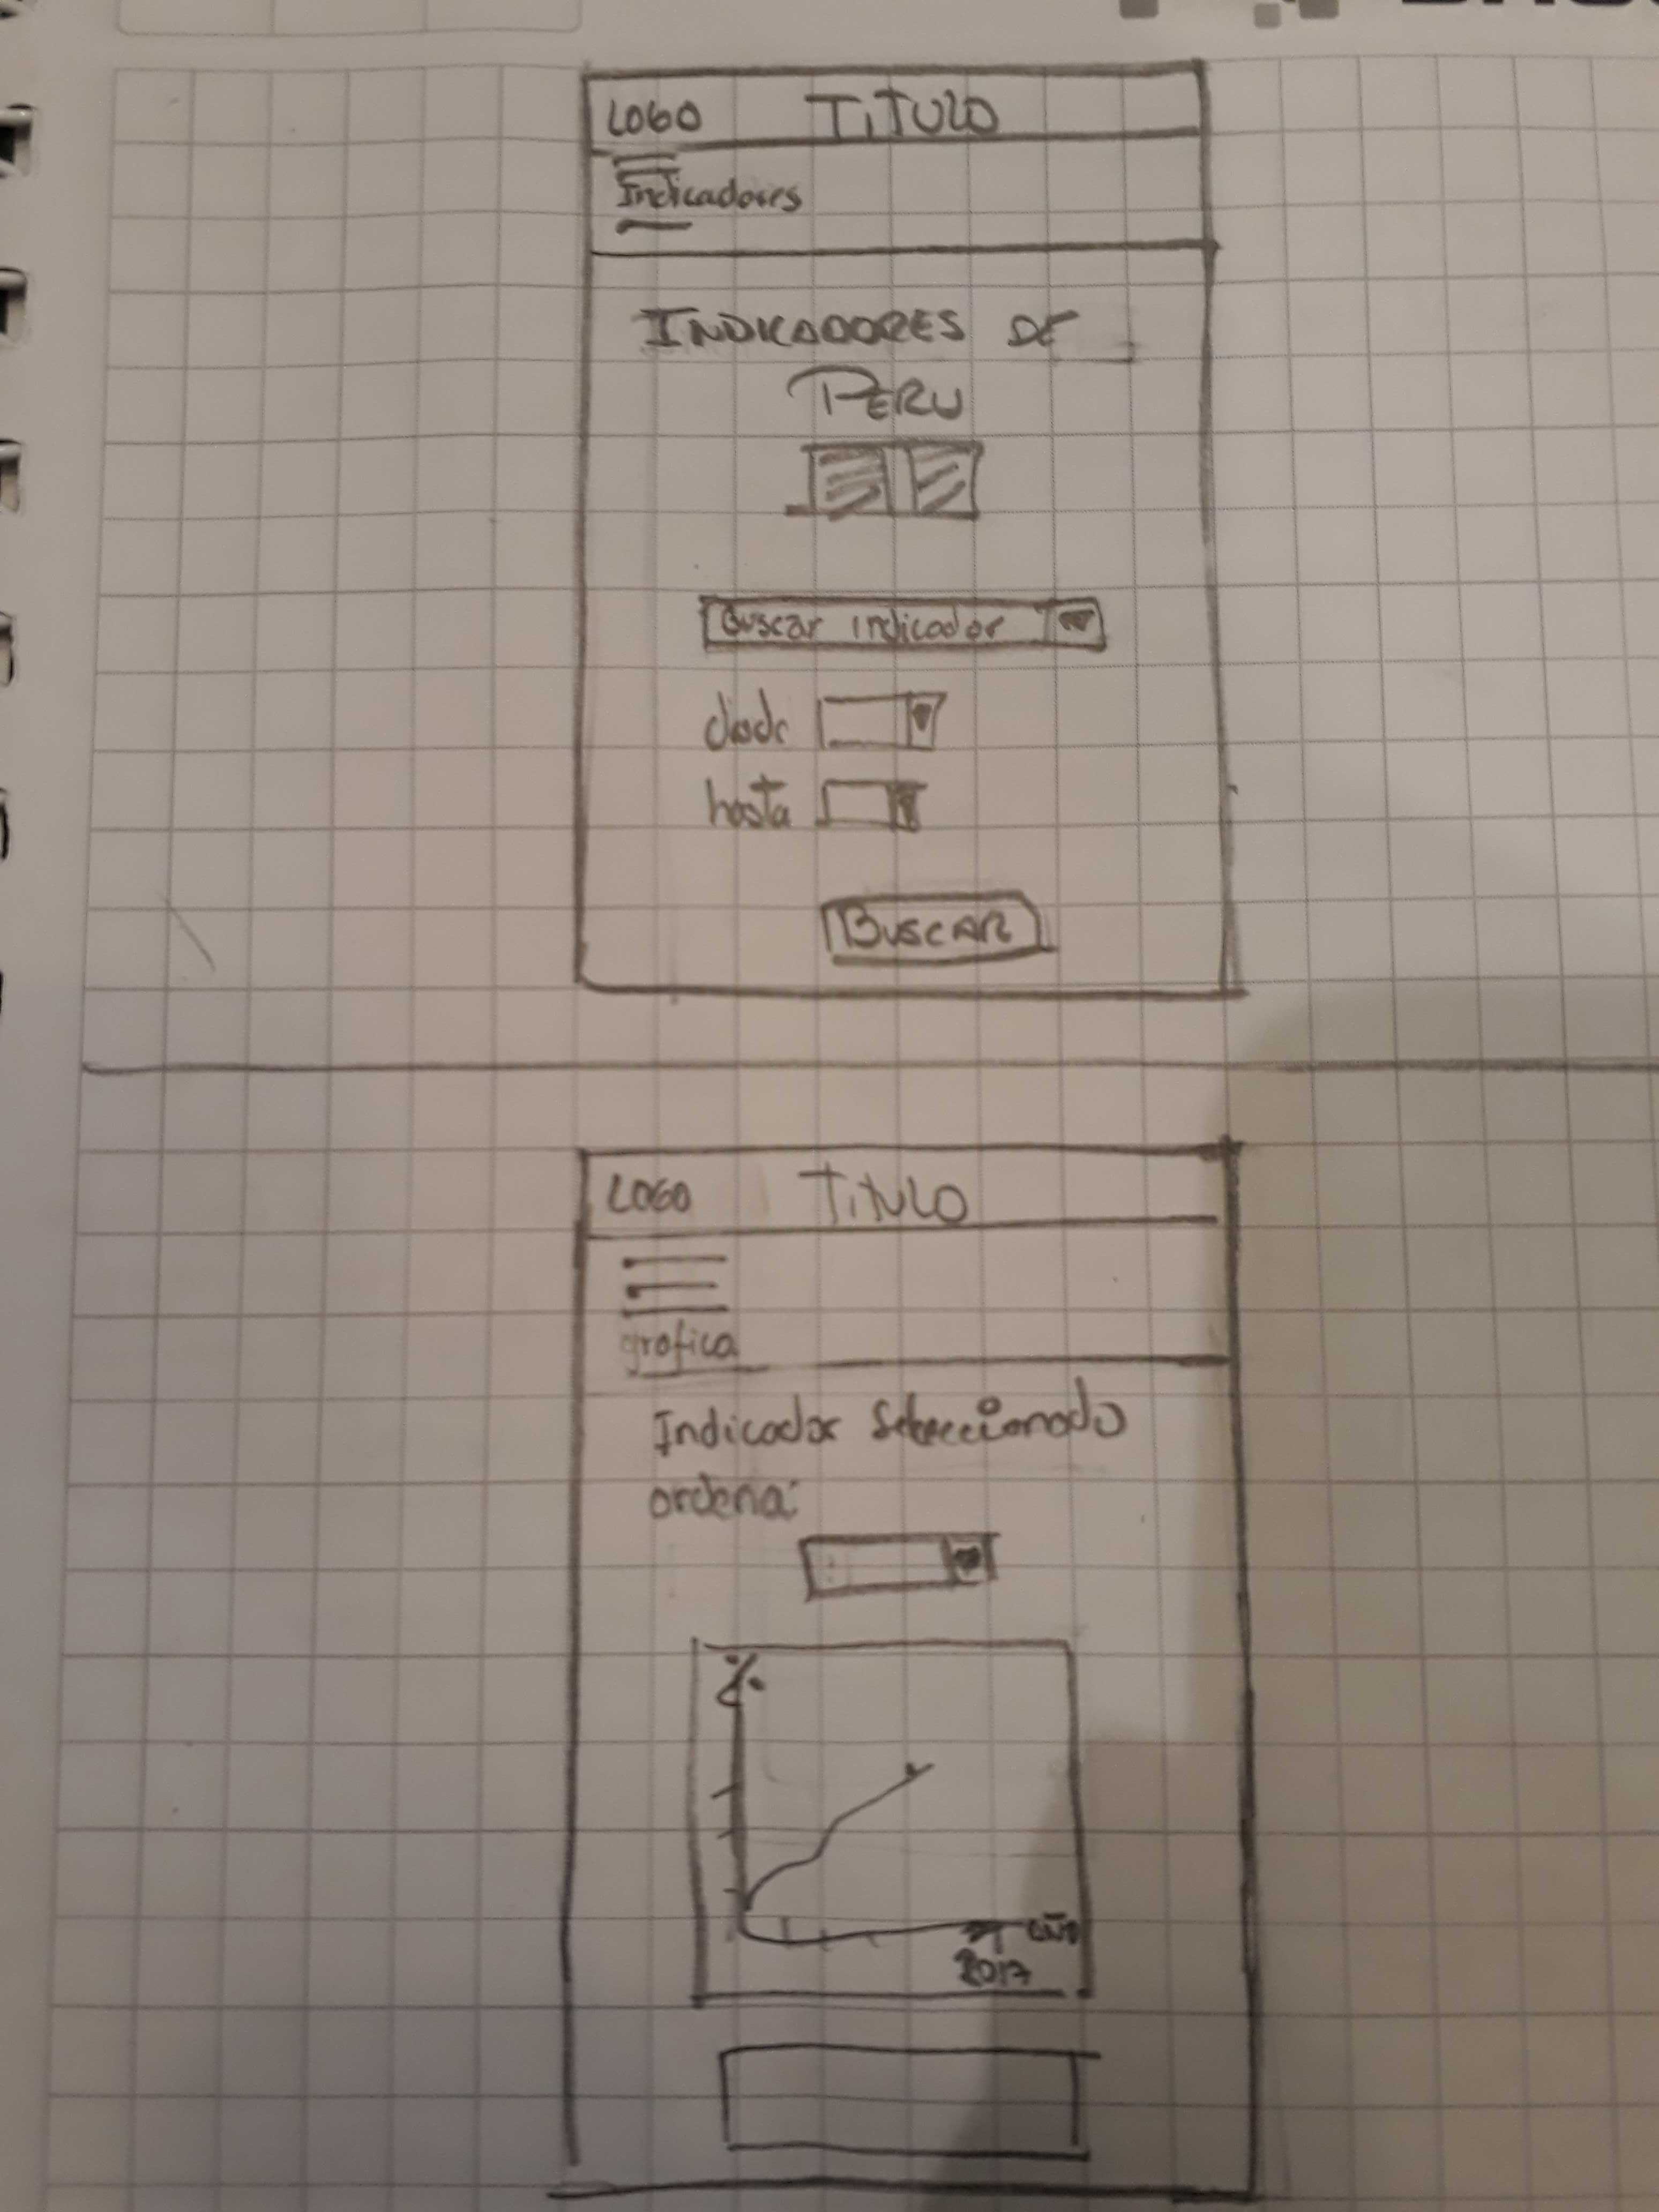 LOGO TITULO
Indicadores
INDICADORES DE
PERU
Buscar indicador
desde
hasta
BUSCAR
LOGO TITULO
grafica
Indicador Seleccionado
ordena:
%
año
2017